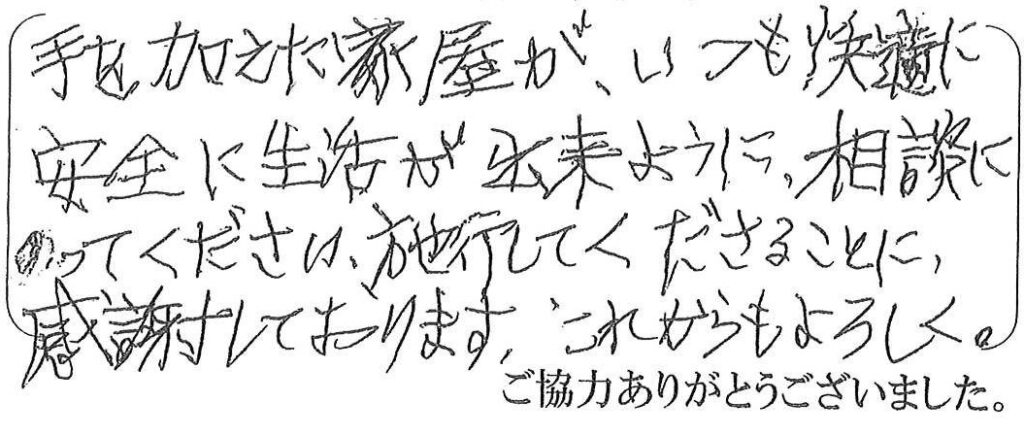 手を加えた家屋が、いつも快適に
安全に生活が出来ように、相談に
のってくださり、施行してくださることに、
感謝しております。これからもよろしく。
ご協力ありがとうございました。